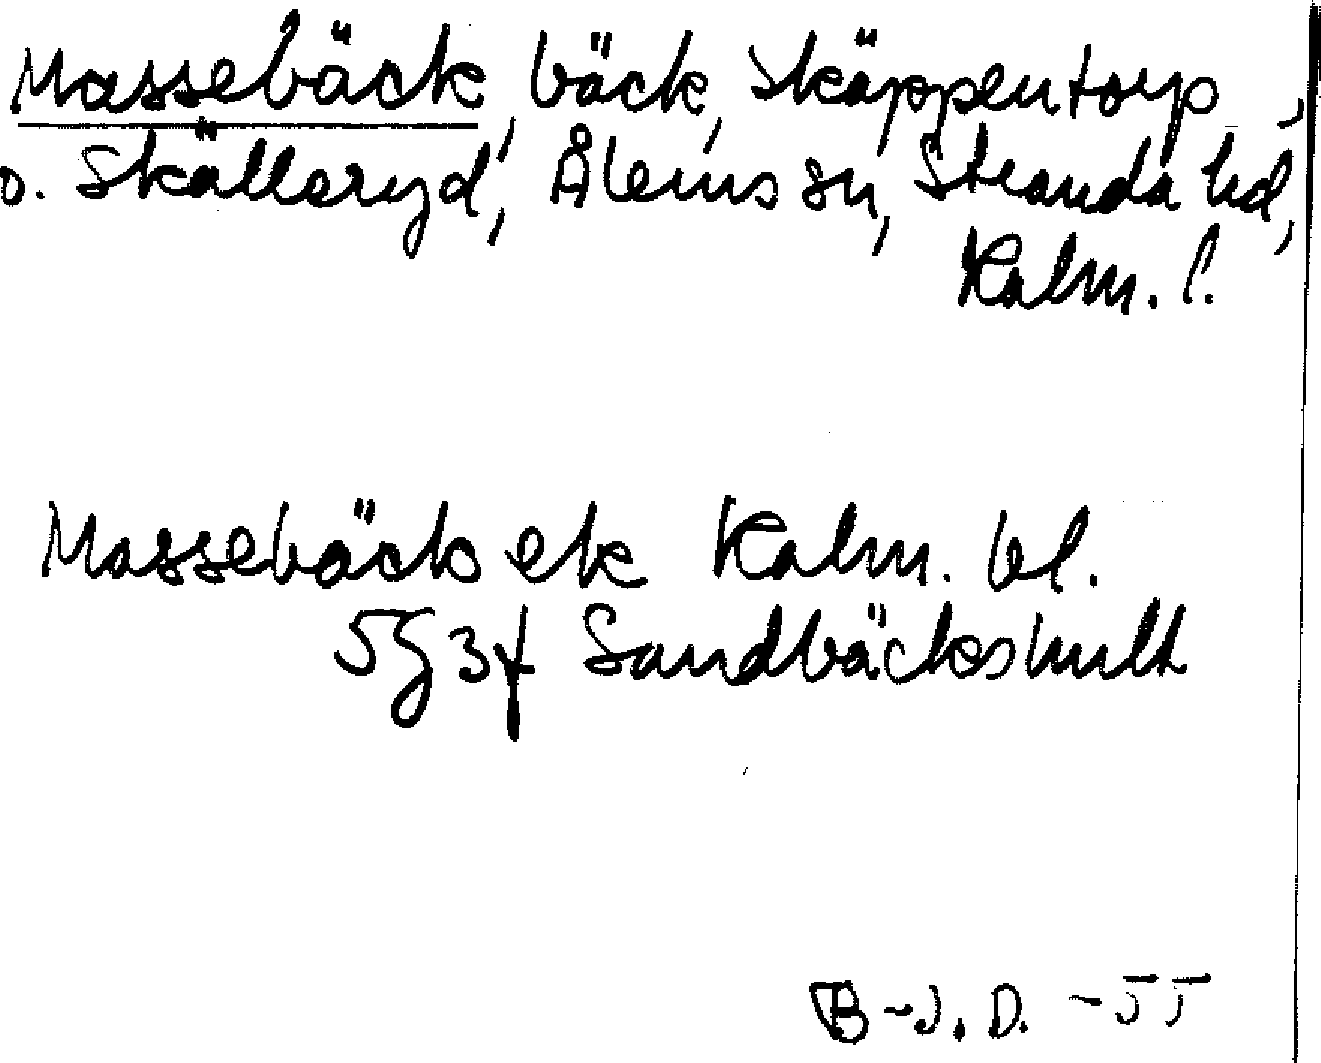 Massebäck, bäck, Skäppentorp,
o. Skälleryd, Ålems sn, Stranda hd,
Kalm. l.
Massebäck ek Kalm. bl.
5g3f Sandbäckshult
B-J. D. -55